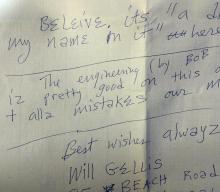 BELEIVE. its "a d
my name on it" here
The engineering (by BOB
iz pretty good on this a
+ alla mistakes our m
Best wishes alwayz
Will GELLIS
BEACH Road